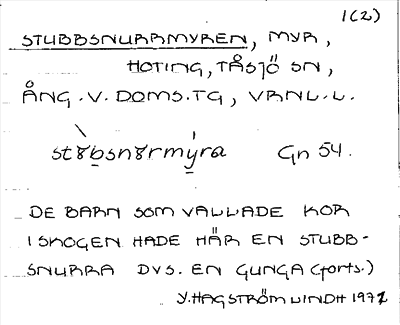 1(2)
STUBBSNURRMYREN, MYR,
HOTING, TÅSJÖ SN,
ÅNG.V.DOMS.TG, VRNL.L.
Gn 54.
DE BARN SOM VALLADE KOR
I SKOGEN HADE HÄR EN STUBB-
SNURRA DVS. EN GUNGA (forts.)
Y.HAGSTRÖM LINDH 1972